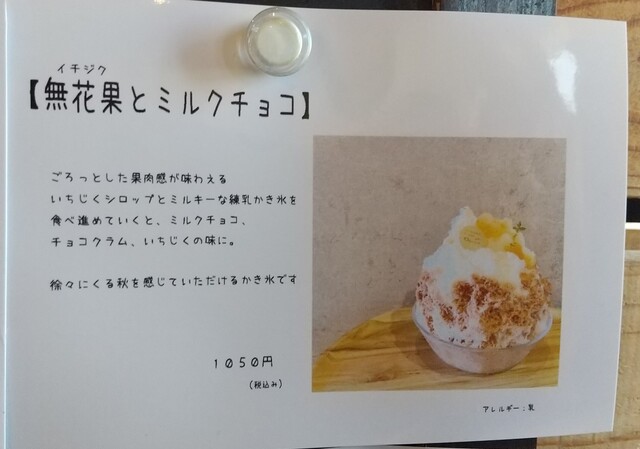 イチジク
【無花果とミルクチョコ】
ごろっとした果肉感が味わえる
いちじくシロップとミルキーな練乳かき氷を
食べ進めていくと、ミルクチョコ、
チョコクラム、いちじくの味に。
徐々にくる秋を感じていただけるかき氷です
1050円
(税込み)
アレルギー：乳